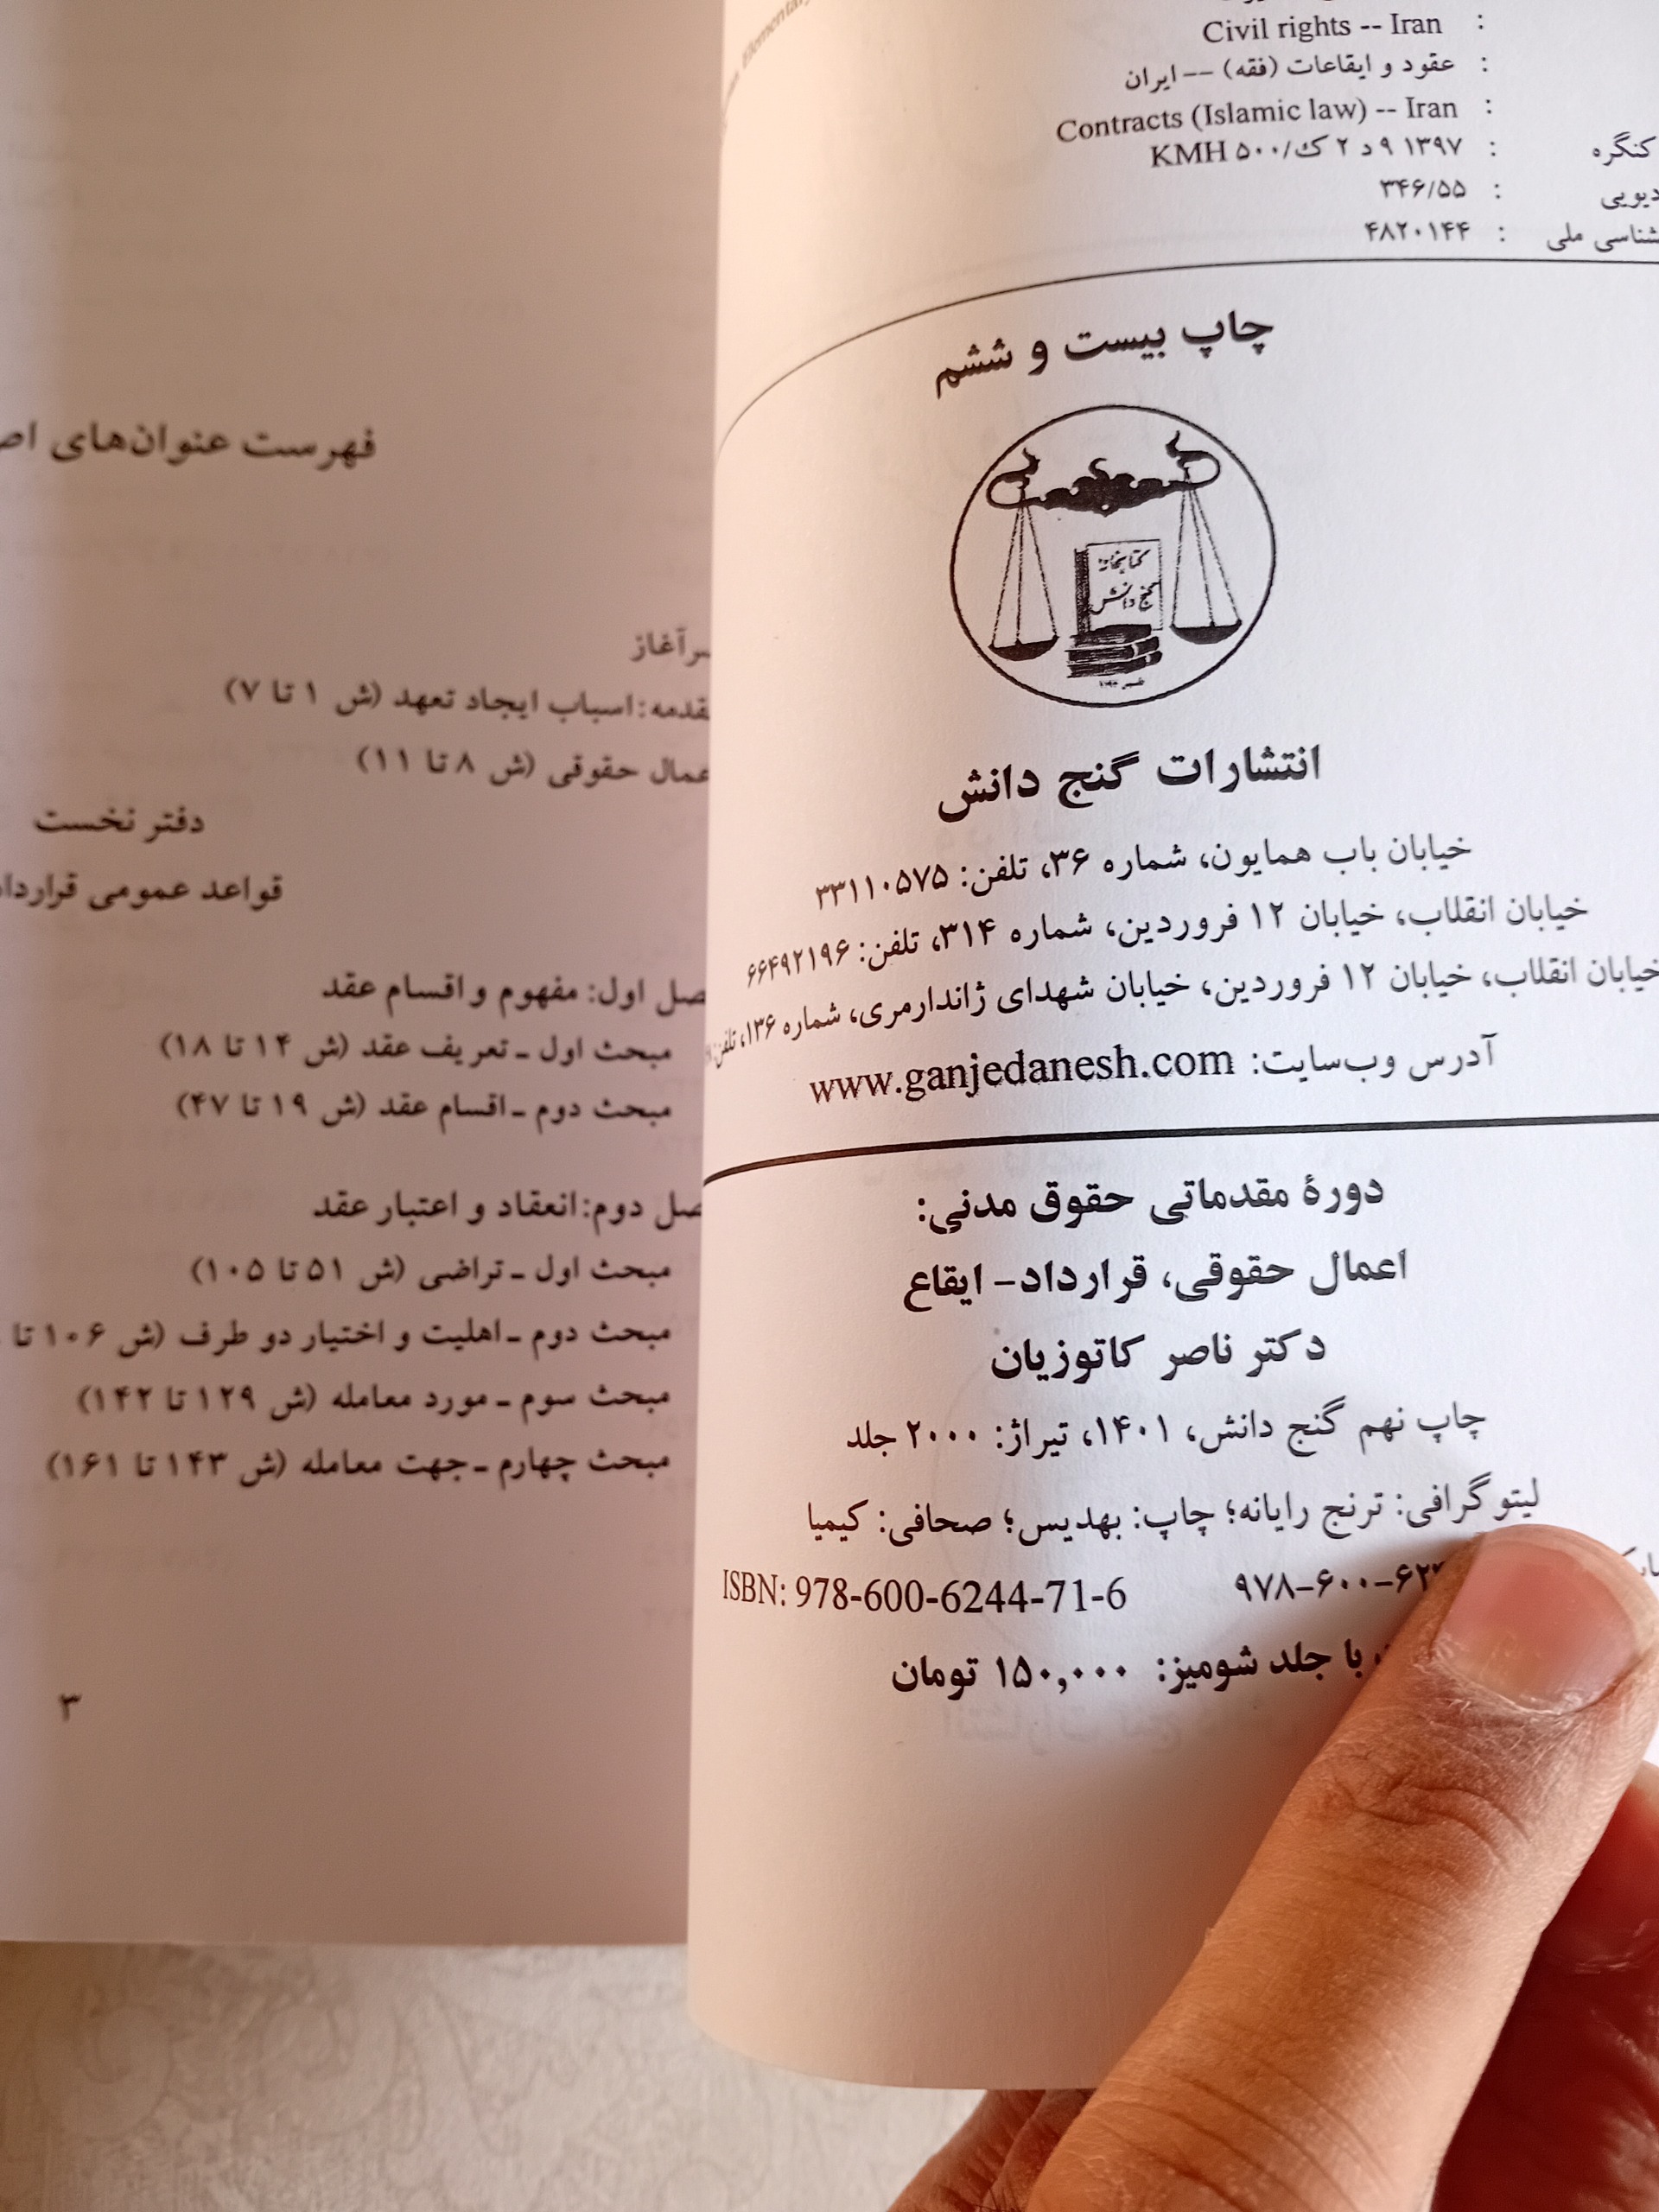 Civil rights -- Iran :
: عقود و ایقاعات (فقه) -- ایران
Contracts (Islamic law) -- Iran :
کنگره : KMH ۵۰۰/ک ۲ د ۹ ۱۳۹۷
دیویی : ۳۴۶/۵۵
شناسی ملی : ۴۸۲۰۱۴۴
چاپ بیست و ششم
کتابخانه
گنج دانش
انتشارات گنج دانش
خیابان باب همایون، شماره ۳۶، تلفن: ۳۳۱۱۰۵۷۵
خیابان انقلاب، خیابان ۱۲ فروردین، شماره ۳۱۴، تلفن: ۶۶۴۹۲۱۹۶
خیابان انقلاب، خیابان ۱۲ فروردین، خیابان شهدای ژاندارمری، شماره ۱۳۶، تلفن:
آدرس وب‌سایت: www.ganjedanesh.com
دورهٔ مقدماتی حقوق مدنی:
اعمال حقوقی، قرارداد- ایقاع
دکتر ناصر کاتوزیان
چاپ نهم گنج دانش، ۱۴۰۱، تیراژ: ۲۰۰۰ جلد
لیتوگرافی: ترنج رایانه؛ چاپ: بهدیس؛ صحافی: کیمیا
۹۷۸-۶۰۰-۶۲۴ ISBN: 978-600-6244-71-6
با جلد شومیز: ۱۵۰,۰۰۰ تومان
فهرست عنوان‌های
سرآغاز
مقدمه: اسباب ایجاد تعهد (ش ۱ تا ۷)
اعمال حقوقی (ش ۸ تا ۱۱)
دفتر نخست
قواعد عمومی قرارداد
فصل اول: مفهوم و اقسام عقد
مبحث اول ـ تعریف عقد (ش ۱۴ تا ۱۸)
مبحث دوم ـ اقسام عقد (ش ۱۹ تا ۴۷)
فصل دوم: انعقاد و اعتبار عقد
مبحث اول ـ تراضی (ش ۵۱ تا ۱۰۵)
مبحث دوم ـ اهلیت و اختیار دو طرف (ش ۱۰۶ تا
مبحث سوم ـ مورد معامله (ش ۱۲۹ تا ۱۴۲)
مبحث چهارم ـ جهت معامله (ش ۱۴۳ تا ۱۶۱)
۳